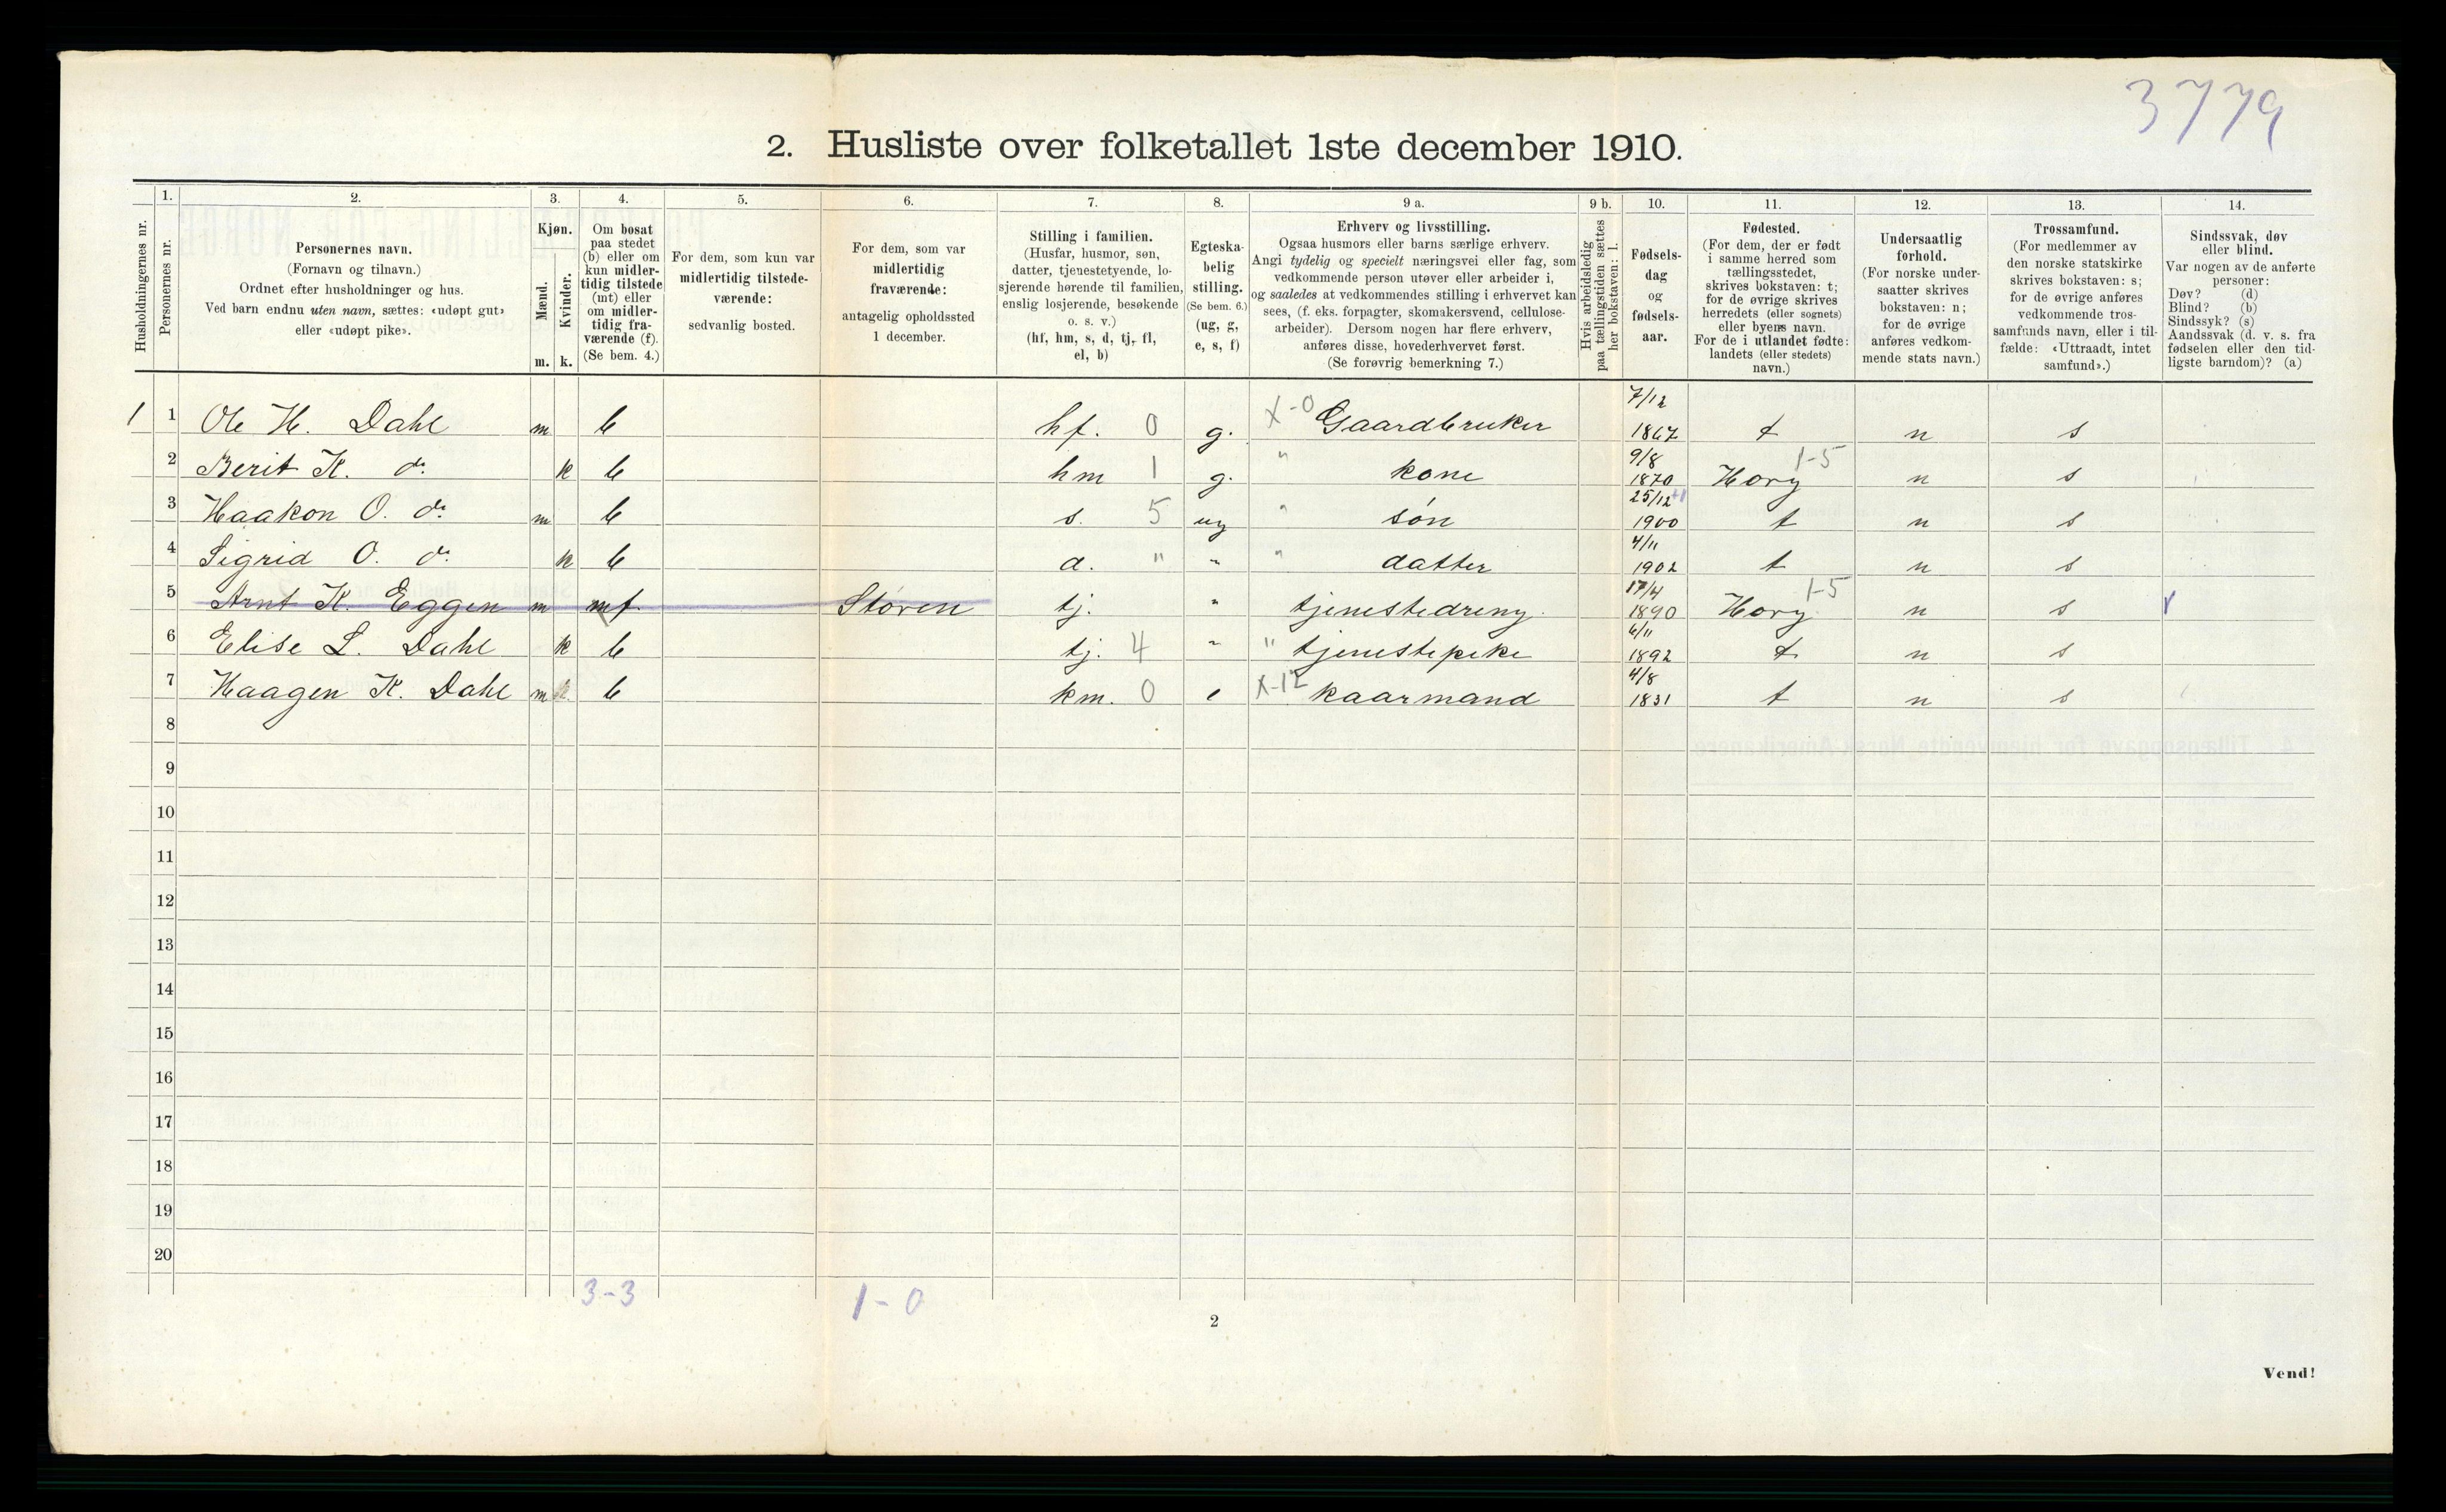 3779
2. Husliste over folketallet 1ste december 1910.
Husholdningernes nr.
1. Personernes nr.
2. Personernes navn.
(Fornavn og tilnavn.)
Ordnet efter husholdninger og hus.
Ved barn endnu uten navn, sættes: «udøpt gut»
eller «udøpt pike».
3. Kjøn.
Mænd. m.
Kvinder. k.
4. Om bosat
paa stedet
(b) eller om
kun midler-
tidig tilstede
(mt) eller
om midler-
tidig fra-
værende (f).
(Se bem. 4.)
5. For dem, som kun var
midlertidig tilstede-
værende:
sedvanlig bosted.
6. For dem, som var
midlertidig
fraværende:
antagelig opholdssted
1 december.
7. Stilling i familien.
(Husfar, husmor, søn,
datter, tjenestetyende, lo-
sjerende hørende til familien,
enslig losjerende, besøkende
o. s. v.)
(hf, hm, s, d, tj, fl,
el, b)
8. Egteska-
belig
stilling.
(Se bem. 6.)
(ug, g,
e, s, f)
9 a. Erhverv og livsstilling.
Ogsaa husmors eller barns særlige erhverv.
Angi tydelig og specielt næringsvei eller fag, som
vedkommende person utøver eller arbeider i,
og saaledes at vedkommendes stilling i erhvervet kan
sees, (f. eks. forpagter, skomakersvend, cellulose-
arbeider). Dersom nogen har flere erhverv,
anføres disse, hovederhvervet først.
(Se forøvrig bemerkning 7.)
9 b. Hvis arbeidsledig
paa tællingstiden sættes
her bokstaven: l.
10. Fødsels-
dag
og
fødsels-
aar.
11. Fødested.
(For dem, der er født
i samme herred som
tællingsstedet,
skrives bokstaven: t;
for de øvrige skrives
herredets (eller sognets)
eller byens navn.
For de i utlandet fødte:
landets (eller stedets)
navn.)
12. Undersaatlig
forhold.
(For norske under-
saatter skrives
bokstaven: n;
for de øvrige
anføres vedkom-
mende stats navn.)
13. Trossamfund.
(For medlemmer av
den norske statskirke
skrives bokstaven: s;
for de øvrige anføres
vedkommende tros-
samfunds navn, eller i til-
fælde: «Uttraadt, intet
samfund».)
14. Sindssvak, døv
eller blind.
Var nogen av de anførte
personer:
Døv? (d)
Blind? (b)
Sindssyk? (s)
Aandssvak (d. v. s. fra
fødselen eller den tid-
ligste barndom)? (a)
1 1 Ole H. Dahl m b hf. 0 g. X-0 Gaardbruker 7/12 1867 t n s
2 Berit K. do k b hm 1 g. " kone 9/8 1870 Horg 1-5 n s
3 Haakon O. do m b s. 5 ug " søn 25/12 +1 1900 t n s
4 Sigrid O. do k b d. " " " datter 4/11 1902 t n s
5 Arnt K. Eggen m mf Støren tj. " tjenestedreng. 17/4 1890 Horg 1-5 n s
6 Elise L. Dahl k b tj. 4 " " tjenestepike 6/11 1892 t n s
7 Haagen K. Dahl m k b km. 0 e X-12 kaarmand 4/8 1831 t n s
8
9
10
11
12
13
14
15
16
17
18
19
20
3-3 1-0
2
Vend!